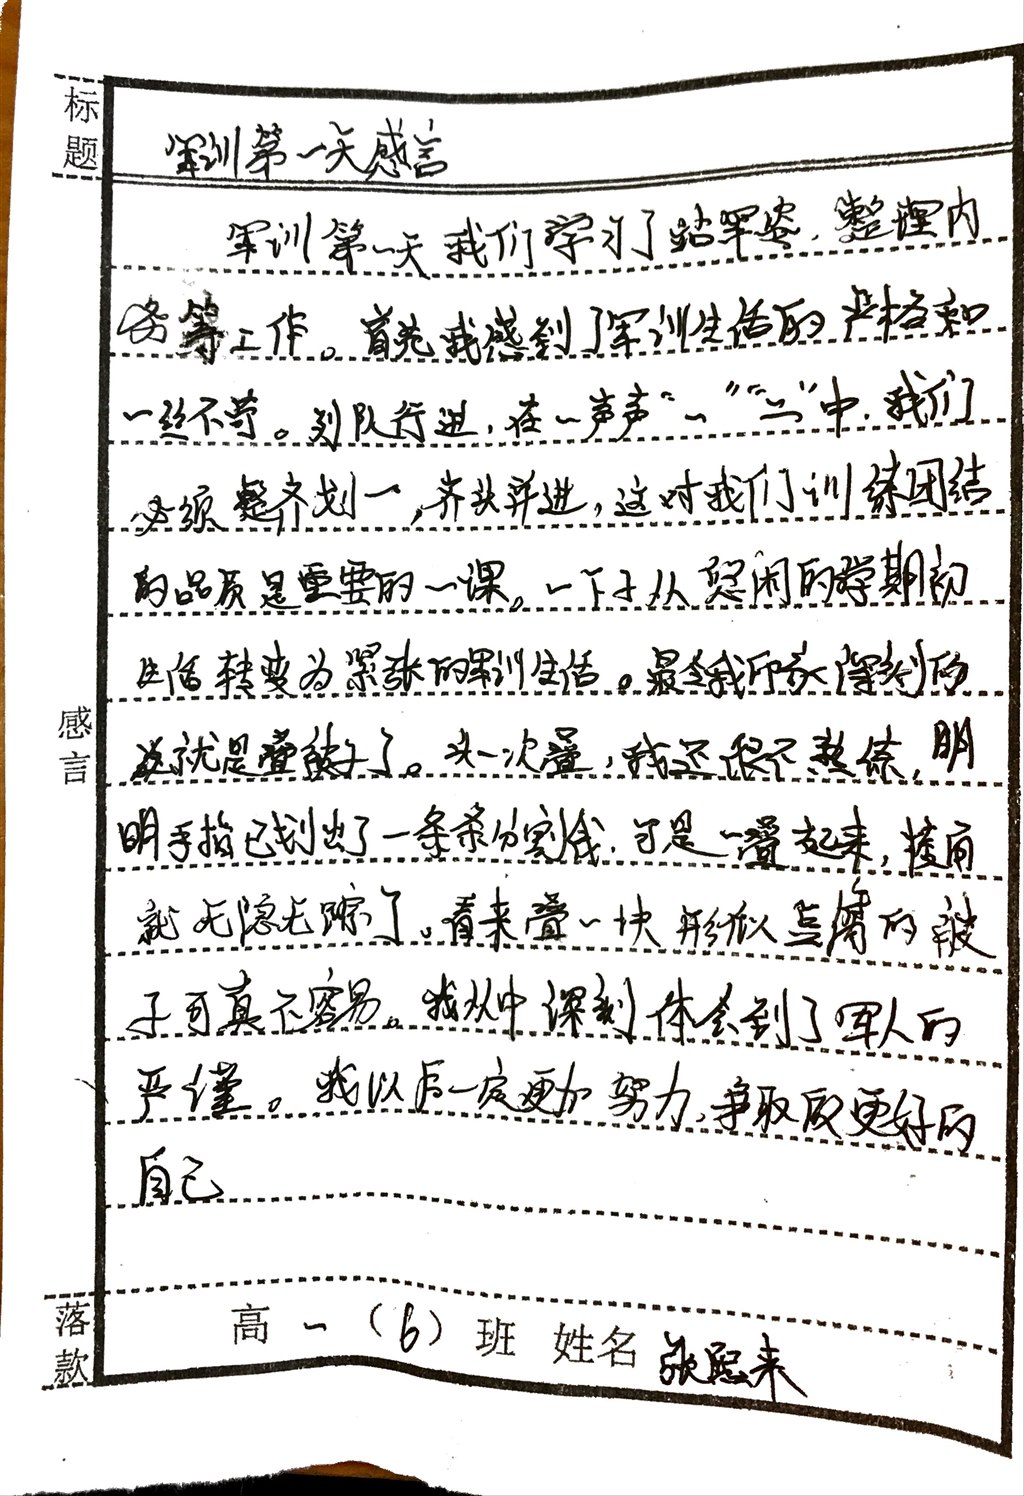 标题
军训第一天感言
军训第一天我们学习了站军姿，整理内
务等工作。首先我感到了军训生活的严格和
一丝不苟。列队行进，在一声声“一”“二”中，我们
必须整齐划一，齐头并进，这对我们训练团结
的品质是重要的一课。一下子从悠闲的学期初
生活转变为紧张的军训生活。最令我印象深刻的
就是叠被子了。头一次叠，我还很不熟练，明
明手指已划出了一条条分割线，可是一叠起来，棱角
就无隐无踪了。看来叠一块形似豆腐的被
子可真不容易。我从中深刻体会到了军人的
严谨。我以后一定更加努力，争取做更好的
自己
感言
落款
高一（6）班 姓名 张熙来